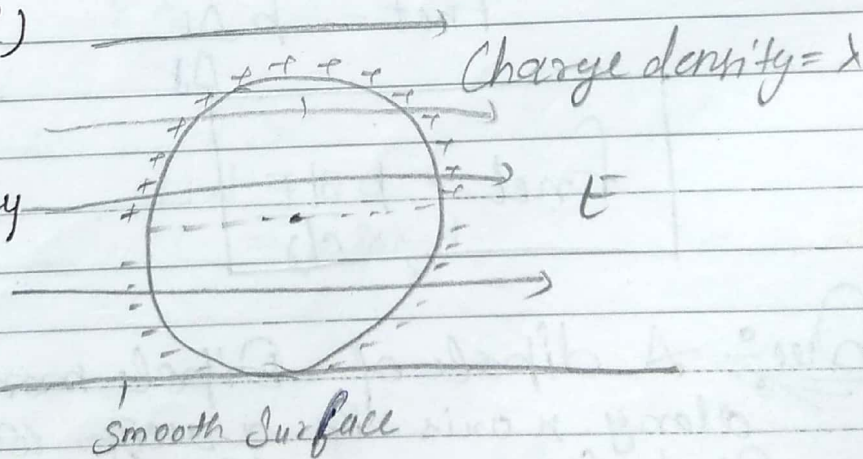 Charge density = λ
y
E
Smooth Surface